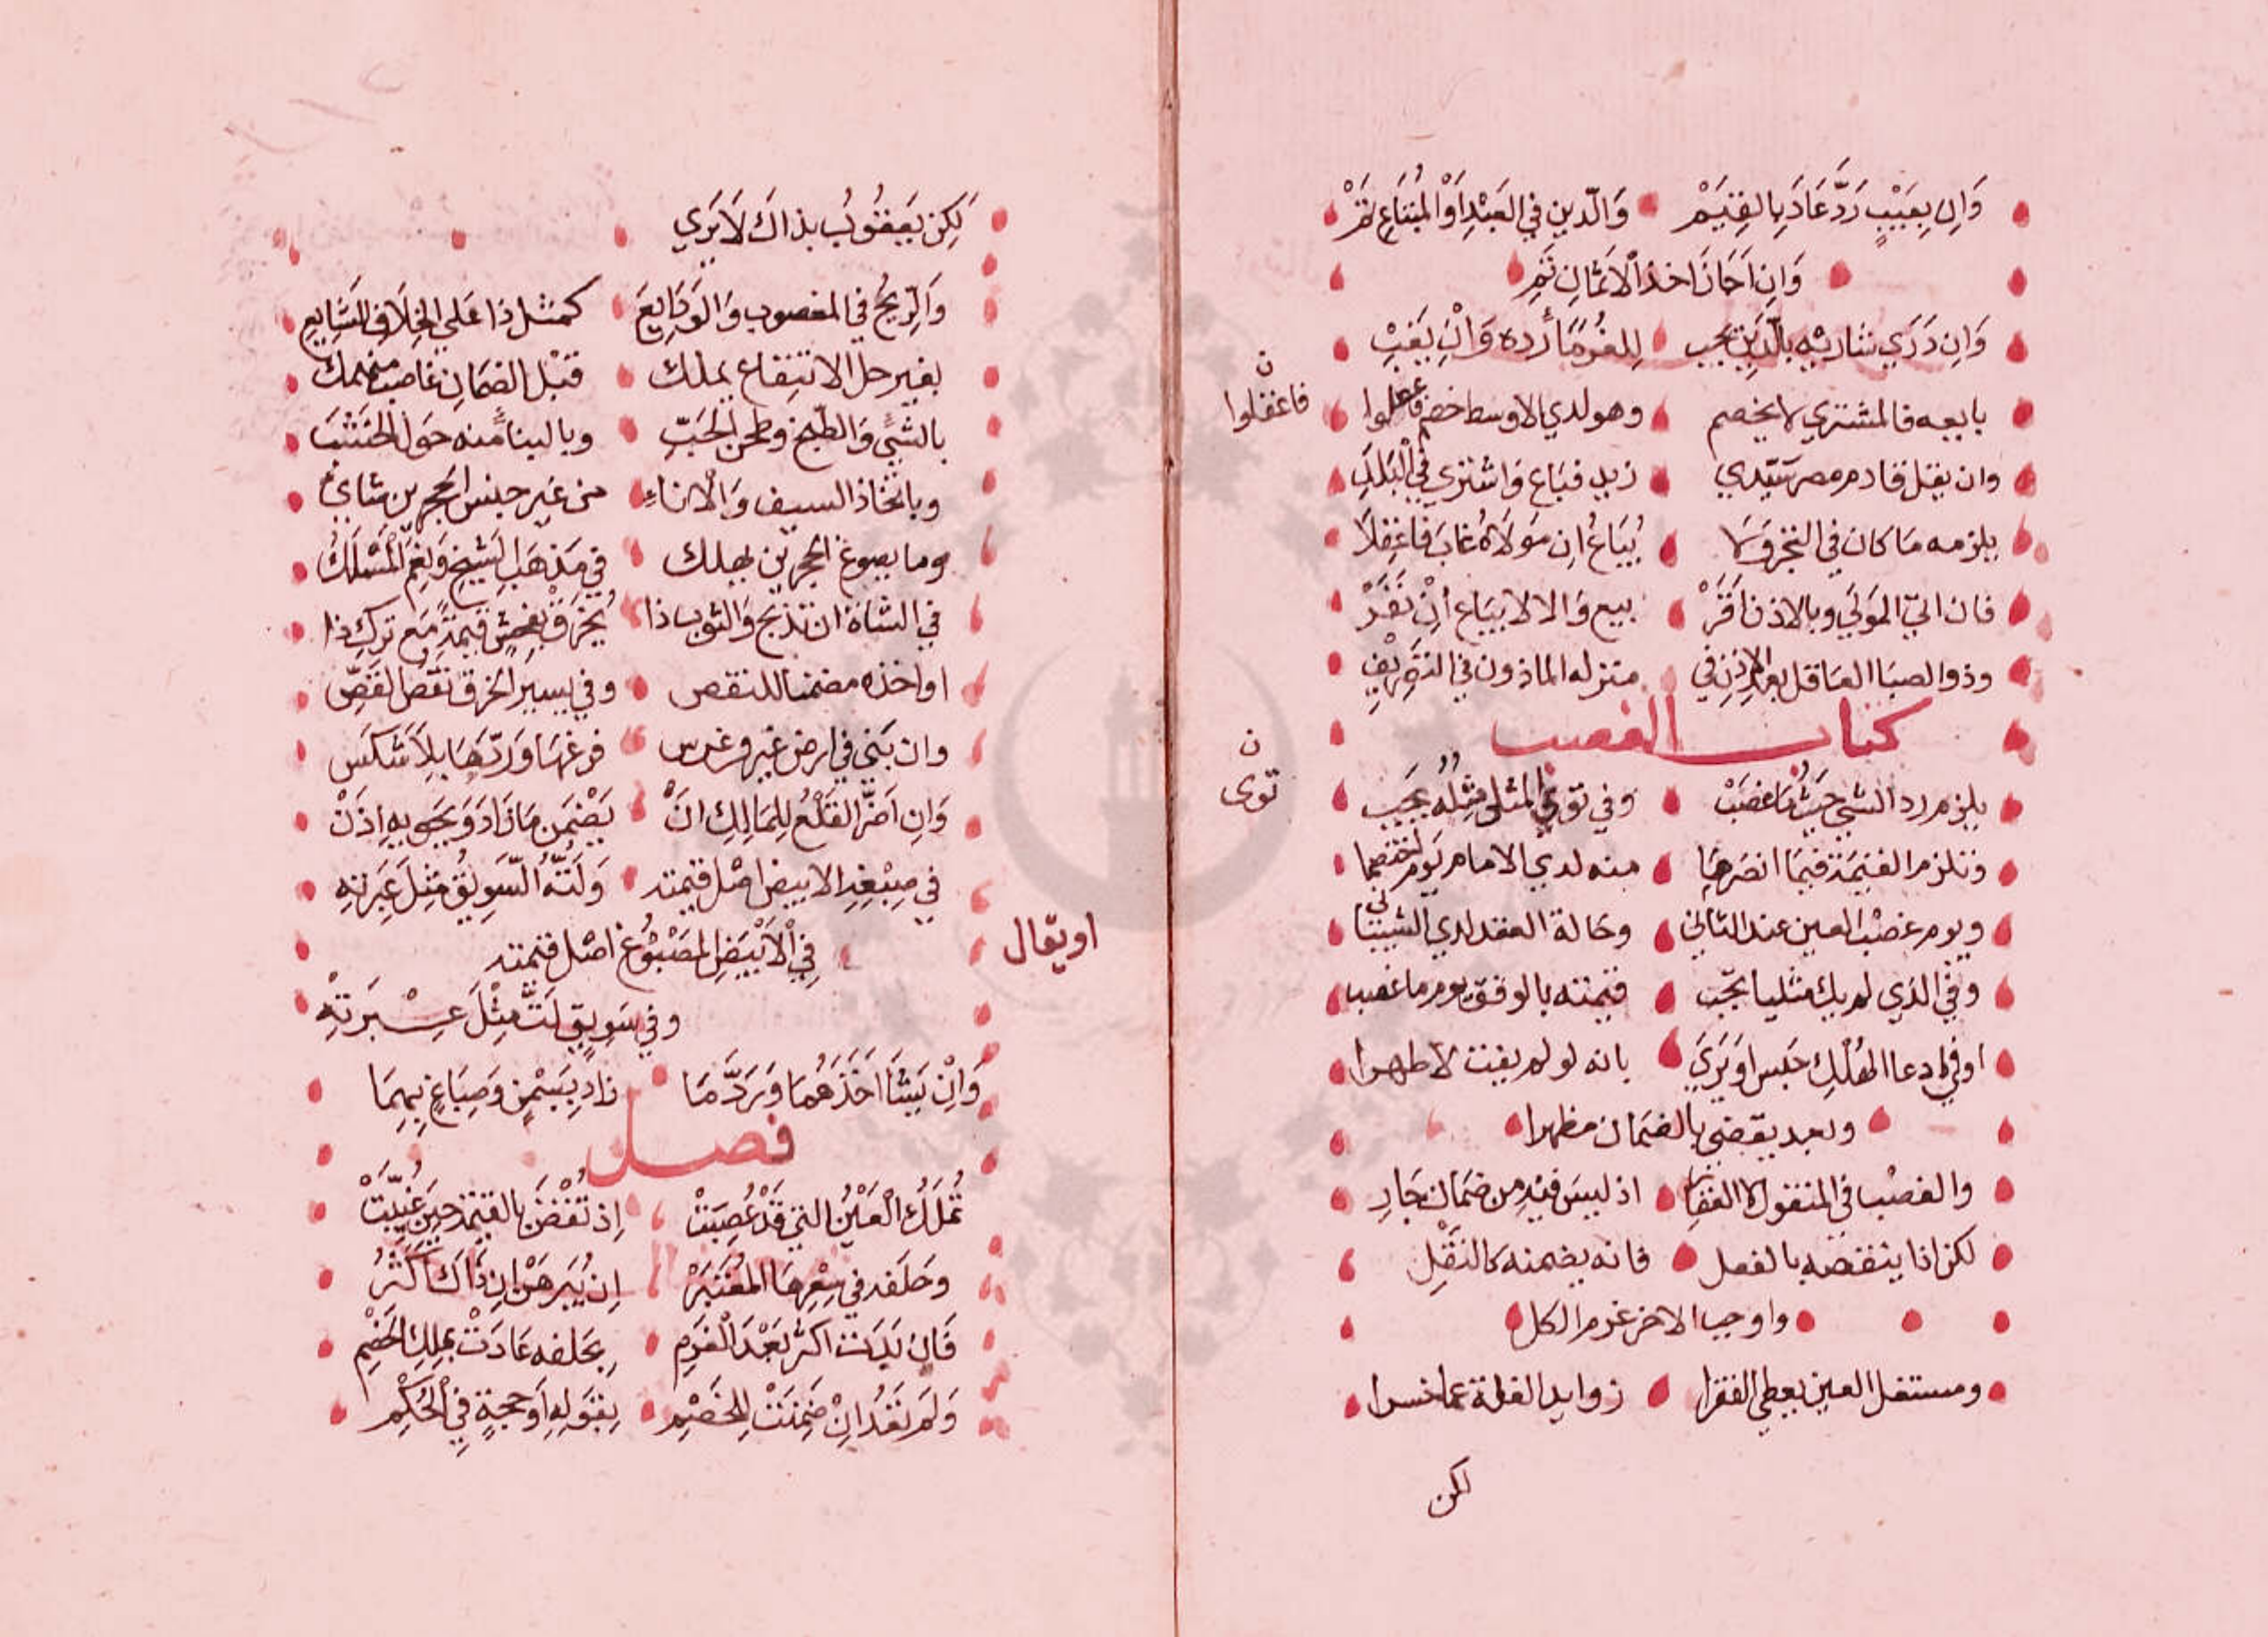 وَاِن بِعَيْبٍ رَدَّ عَادَ بِالقِيَمْ وَالدّين في العَبْدِ اَوْ المُبْتَاعِ تَمْ
وَاِن اَجَازَ اخذ الاَثمانِ تَمِ
وَاِن دَرَي شاريْه بالدّيَنِ يجب لِلغُرَمَا رده وَاِنْ يَغِبْ
بايعه فالمشتري لا يخصم وهو لدي الاوسط خصم فاعملوا
فاعقلوا ن
وان يقل قادم مصر سَيّدي زيد فبَاع وَاشتري في الْبَلَدِ
يلزمه مَا كان في التجرِ وَلَا يُبَاعُ اِن مَولَاهُ غابَ فاعْقِلَا
فان اتيَ المَولَي وبالاذن اَقَرْ بيع وَالا لا يبَاع اِنْ نَفَرْ
وذو الصبَا العَاقل بعد الاِذنِ في منزله الماذون في التصَرفِ
كتاب الغصب
يلزم رد الشي حَيثُ مَا غصَبْ وفي تَوَي المثلي مِثلُه يَجِبِ
توى ن
وتلزم القيمَة فيمَا انصَرمَا منه لدي الامام يَوم اختصما
ويوم غصْب العين عند الثاني وحَالة الفقد لدي الشيبَاني
وفي الذي لم يك مثليا يجب قيمته بالوفق يوم ما غصب
او في ادعا الهُلْكِ حَبس اَو يَرَيَ بانه لو لم يفت لاظهرا
وبعد يقضي بالضمان مظهرا
والغصْب في المنقول لا العقار اذ ليس فيْهِ مِن ضمَان جَارِ
لكن اذا ينقصه بالفعل فانه يضمنه كالنقْلِ
واوجب الاخر غرم الكل
ومستغل العين يعطي الفقرا زوايد الغلة عما خسرا
لكن
لَكِن يَعقُوبُ بذاكَ لَا يَرَي
وَالرِّبحُ في المغصوب وَالوَدَايِعَ كمثل ذا عَلي الخِلَافِ الشَايِعِ
بغير حل الانتِفاع يملك قبْل الضمَانِ غاصب منهمك
بالشيّ وَالطّبخ وطحن الحَبِّ وبالبناء منه حَول الخشَبَ
وباتخاذ السيف وَالاناءِ من غيرِ جنس الحجرين شايءْ
وما بصوغ الحجرين يهلك في مَذهَبِ الشيخ وَنِعْمَ المَسْلَكُ
في الشاة ان تذبح وَالثوب اذا يُخرَقْ بفحشٍ قيمَةً مَع ترك ذا
او اخذه مضمنا للنقص وفي يسير الخرق نقص الفَصِّ
وان بَنَي في ارض غير وغرس فرغهَا وَردّهَا بِلَا شَكَس
وَاِن اَضَرَّ القَلْعُ لِلمَالِكِ اَنْ يَضْمَن مَازادَ وَيَحوِيهِ اِذَنْ
في صِبْغِهِ الابيض اصل قيمته وَلَتّه السَّوِيقَ مِثلَ عِبرَتِه
اويقال
فِي الْاَبْيَضِ المَصْبُوغِ اصل قيمته
وفي سَوِيقٍ لَتَّ مِثْلَ عِبْرَتِهْ
وَاِنْ يَشَا اَخَذَهُمَا وَرَدَّ مَا زاد بِسَمْنٍ وَصِبَاغٍ بِهِمَا
فصل
تُملَكُ الْعَيْنُ التي قَدْ غُصِبَتْ اِذ تُقْضَ بالقيمَة حِينَ غُيِّبَتْ
وحَلفه في سِعْرِهَا المُعْتَبَرْ اِن يُبَرهَن اِن ذَاكَ اَكْثَرُ
فَاِن بَدَت اكثر بَعْدَ الْغرمِ بحَلفه عَادَتْ بِمِلكِ الخَصْمِ
وَلَم تَعُد اِنْ ضَمِنَتْ لِلخَصْمِ بِقَوله اَو حجةٍ فِي الحُكْمِ